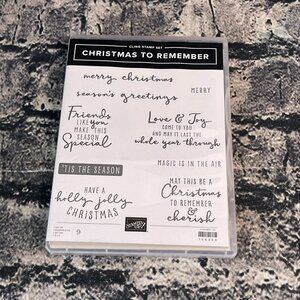 CLING STAMP SET
CHRISTMAS TO REMEMBER
merry christmas
season's greetings
MERRY
Friends
LIKE you
MAKE THIS
SEASON
Special
Love & Joy
COME TO YOU
AND MAY IT LAST THE
whole year through
MAGIC IS IN THE AIR
'TIS THE SEASON
HAVE A
holly jolly
CHRISTMAS
MAY THIS BE A
Christmas
TO REMEMBER
&
cherish
9